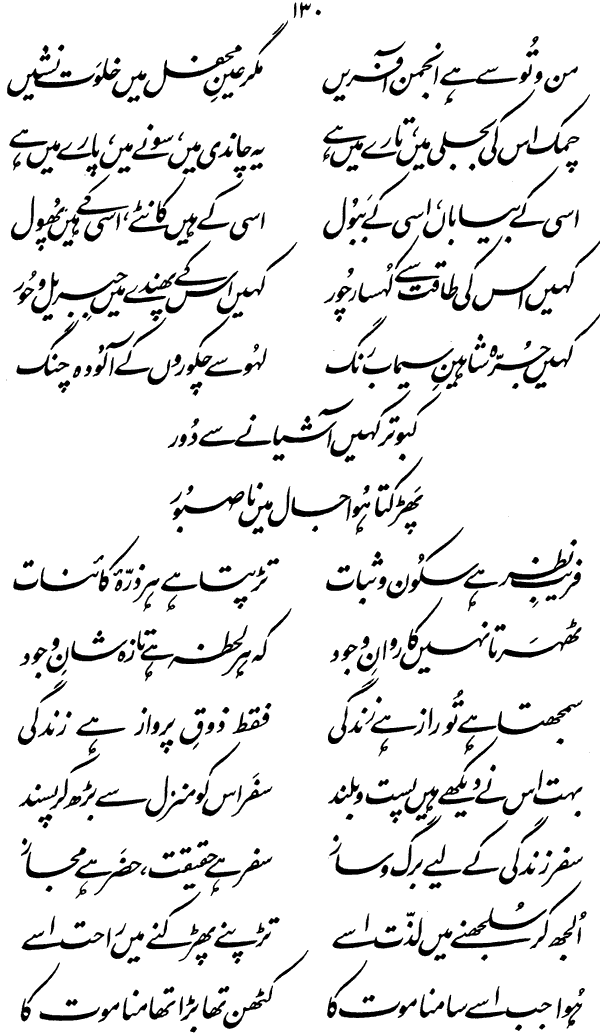 ۱۳۰
من و تُو سے ہے انجمن آفریں مگر عینِ محفل میں خلوَت نشیں
چمک اس کی بجلی میں، تارے میں ہے یہ چاندی میں، سونے میں، پارے میں ہے
اسی کے بیاباں، اسی کے بَبُول اسی کے ہیں کانٹے، اسی کے ہیں پھُول
کہیں اس کی طاقت سے کُہسار چُور کہیں اس کے پھندے میں جبریل و حُور
کہیں جُرّہ شاہینِ سیماب رنگ لہُو سے چکوروں کے آلُودہ چنگ
کبوتر کہیں آشیانے سے دُور
پھَڑکتا ہُوا جال میں ناصبُور
فریبِ نظر ہے سکُون و ثبات تڑپتا ہے ہر ذرّۂ کائنات
ٹھہَرتا نہیں کاروانِ وجود کہ ہر لحظہ ہے تازہ شانِ وجود
سمجھتا ہے تُو راز ہے زندگی فقط ذوقِ پرواز ہے زندگی
بہت اس نے دیکھے ہیں پست و بلند سفَر اس کو منزل سے بڑھ کر پسند
سفر زندگی کے لیے برگ و ساز سفر ہے حقیقت، حضَر ہے مجاز
اُلجھ کر سُلجھنے میں لذّت اسے تڑپنے پھڑکنے میں رَاحت اسے
ہُوا جب اسے سامنا موت کا کٹھن تھا بڑا تھامنا موت کا